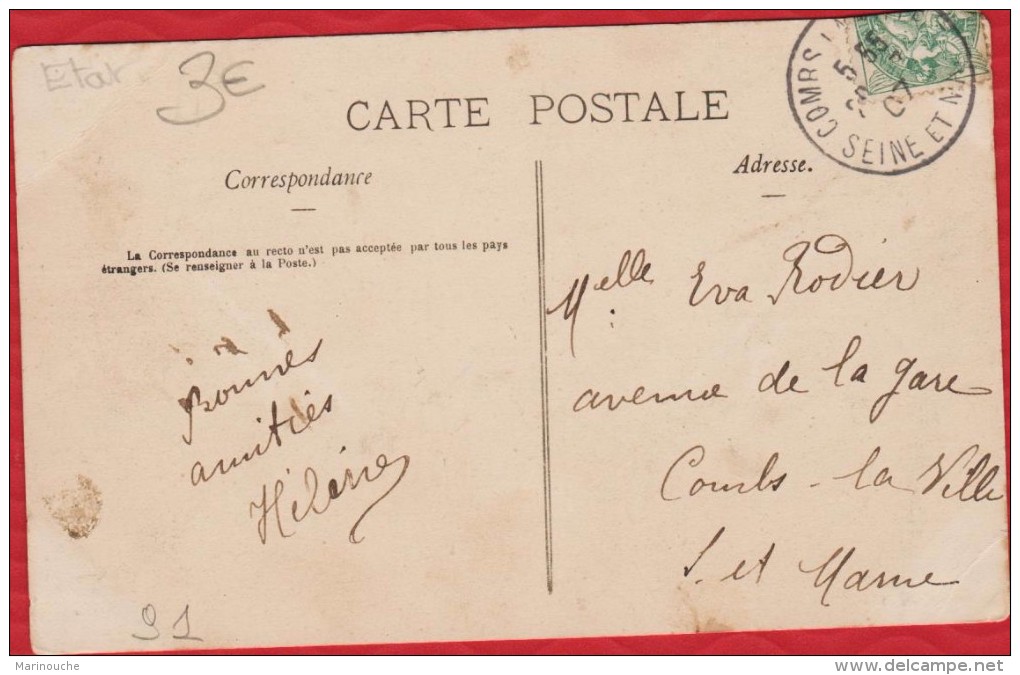 Etat
3€
CARTE POSTALE
COMBS
SEINE ET M
5 55
07
Correspondance
Adresse.
La Correspondance au recto n'est pas acceptée par tous les pays
étrangers. (Se renseigner à la Poste.)
Melle Eva Rodier
avenue de la gare
Combs-la Ville
S. et Marne
Bonnes
amitiés
Hélène
91
Marinouche
www.delcampe.net